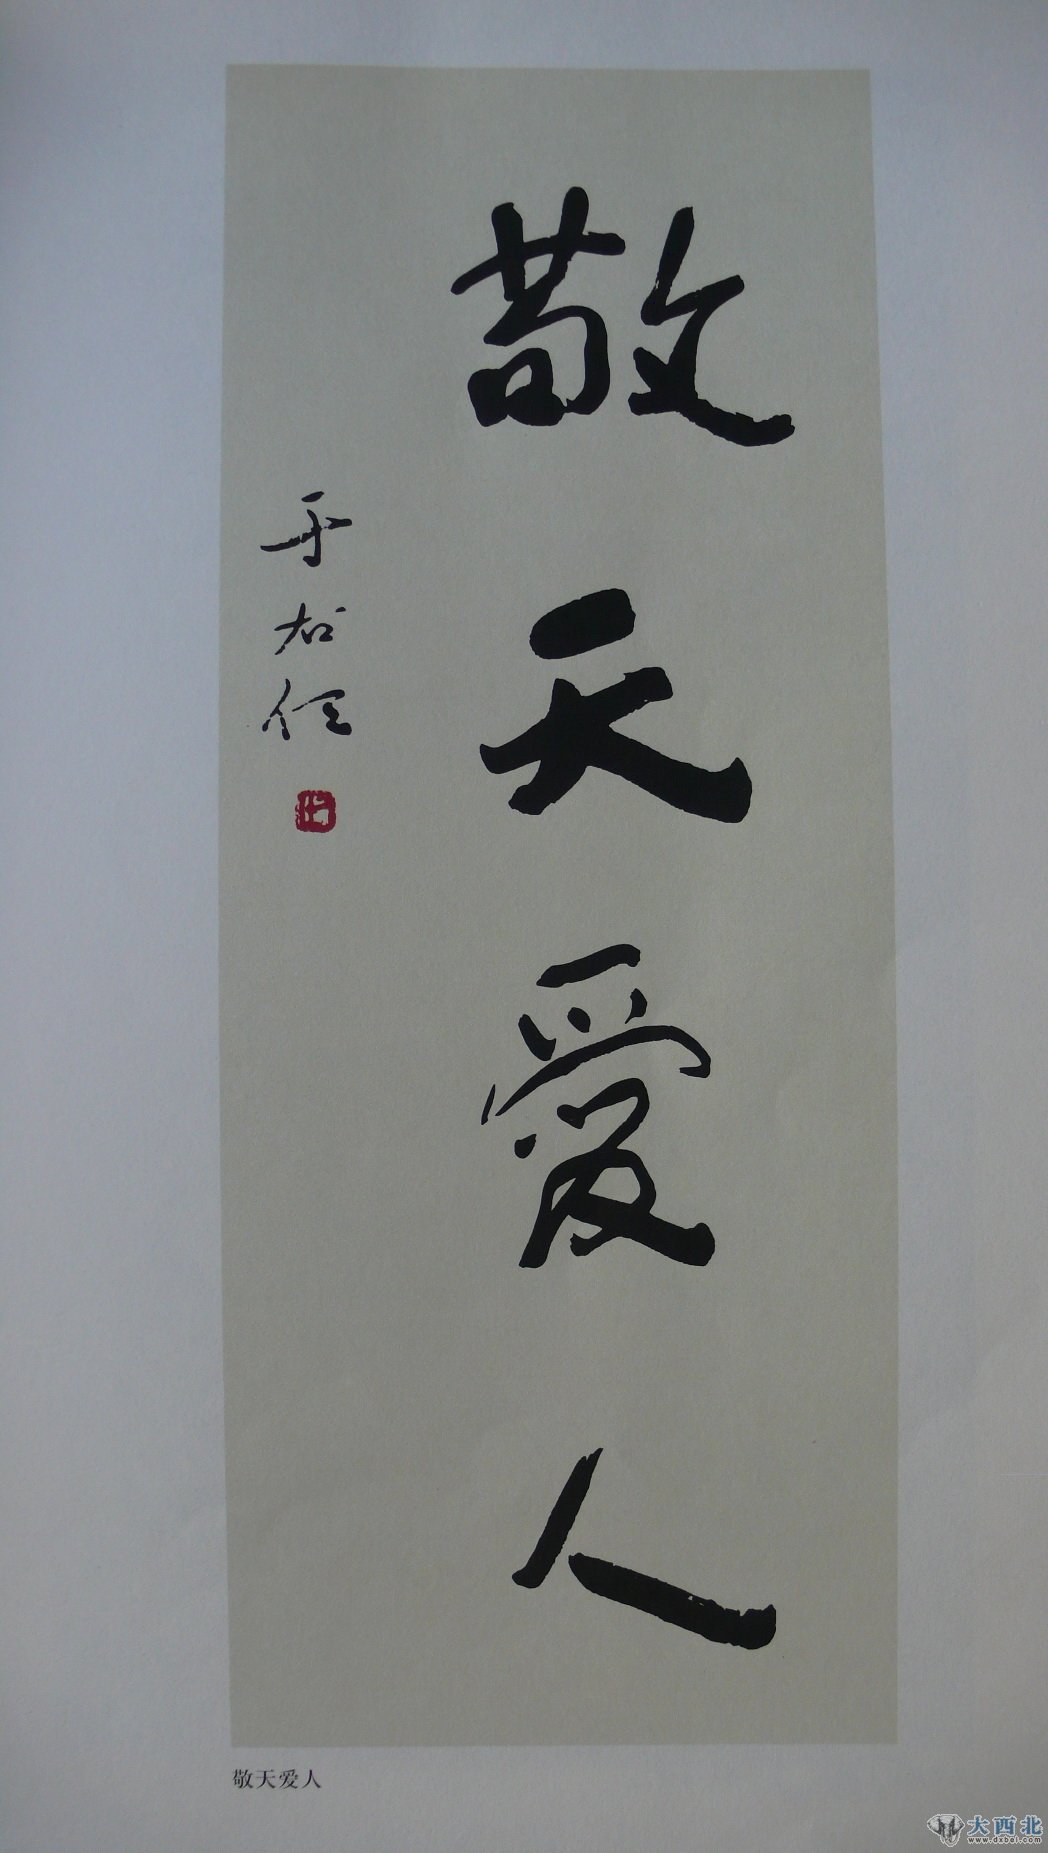 敬天愛人
于右任
敬天爱人
大西北
www.dxbei.com